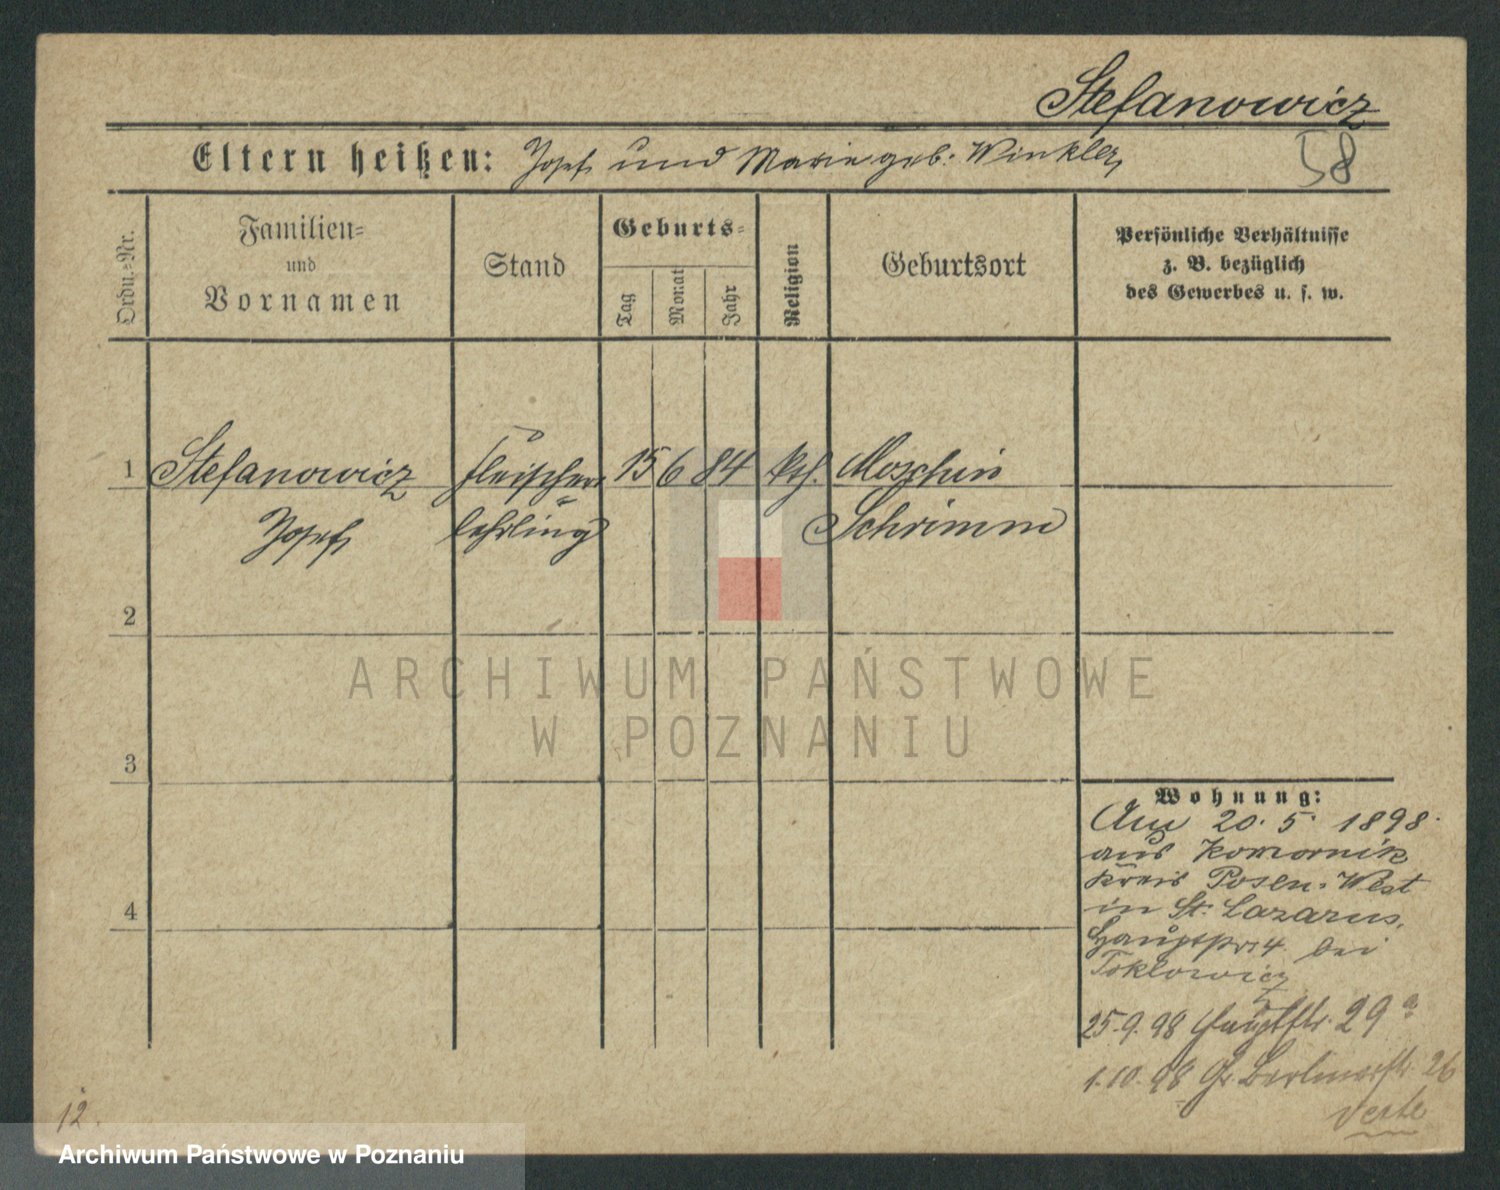 Stefanowicz
Eltern heißen: Josef und Marie geb. Winkler
58
Ordn.=Nr.
Familien=
und
Vornamen
Stand
Geburts=
Tag
Monat
Jahr
Religion
Geburtsort
Persönliche Verhältnisse
z. B. bezüglich
des Gewerbes u. s. w.
1 Stefanowicz Fleischer= 15 6 84 kth. Moschin
Josef lehrling Schrimm
2
3
4
Wohnung:
Am 20. 5. 1898
aus Komornik
Kreis Posen-West
in St. Lazarus,
bei
25.9.98 Hauptstr. 29a
1.10.98 Gr. Berlinerstr. 26
verte
12.
ARCHIWUM PAŃSTWOWE
W POZNANIU
Archiwum Państwowe w Poznaniu